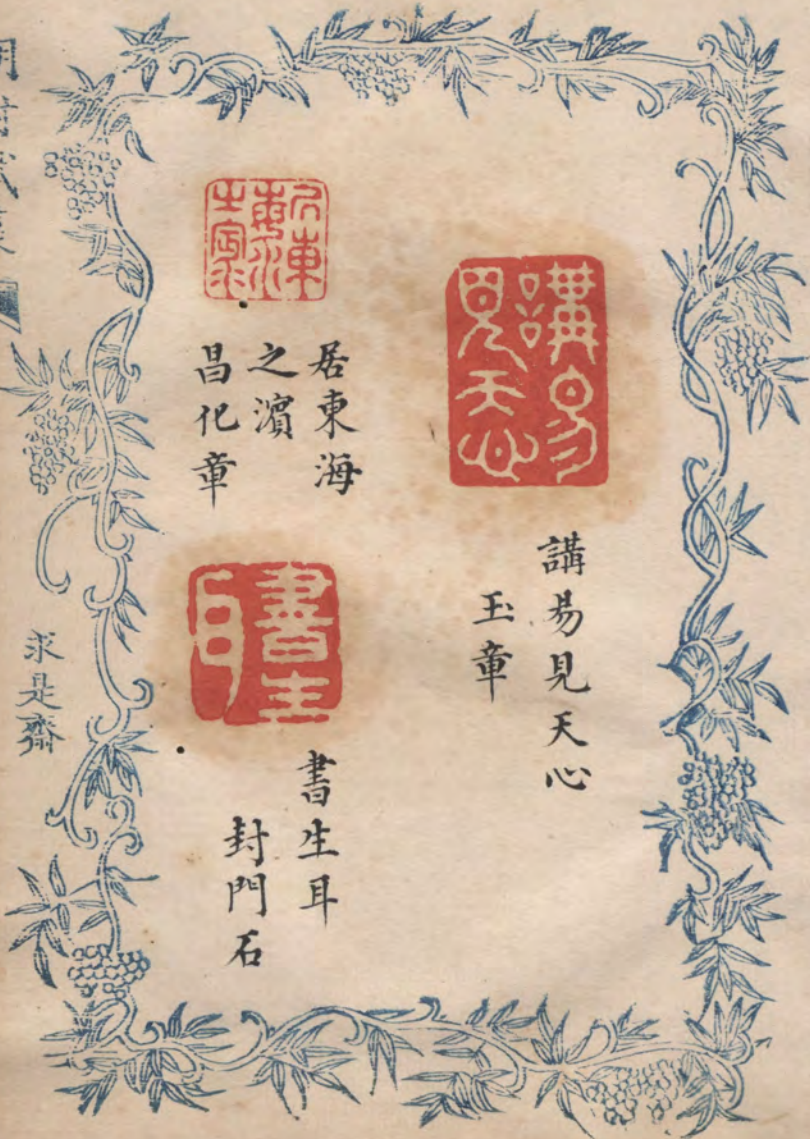 講易
見天心
講易見天心
玉章
居東海
之濱
昌化章
書生
耳
書生耳
封門石
求是齋